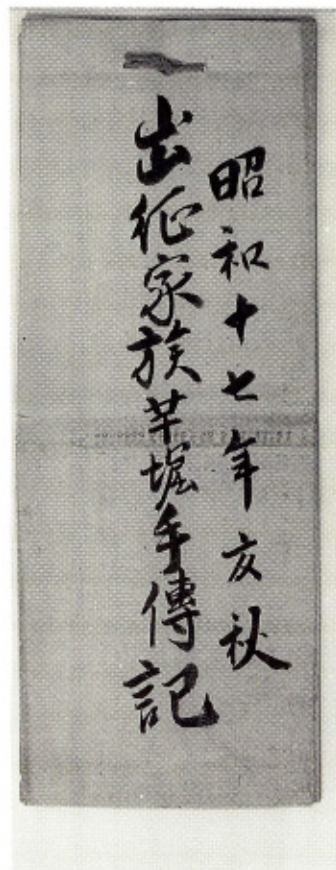 昭和十七年亥秋
出征家族芋堀手傳記